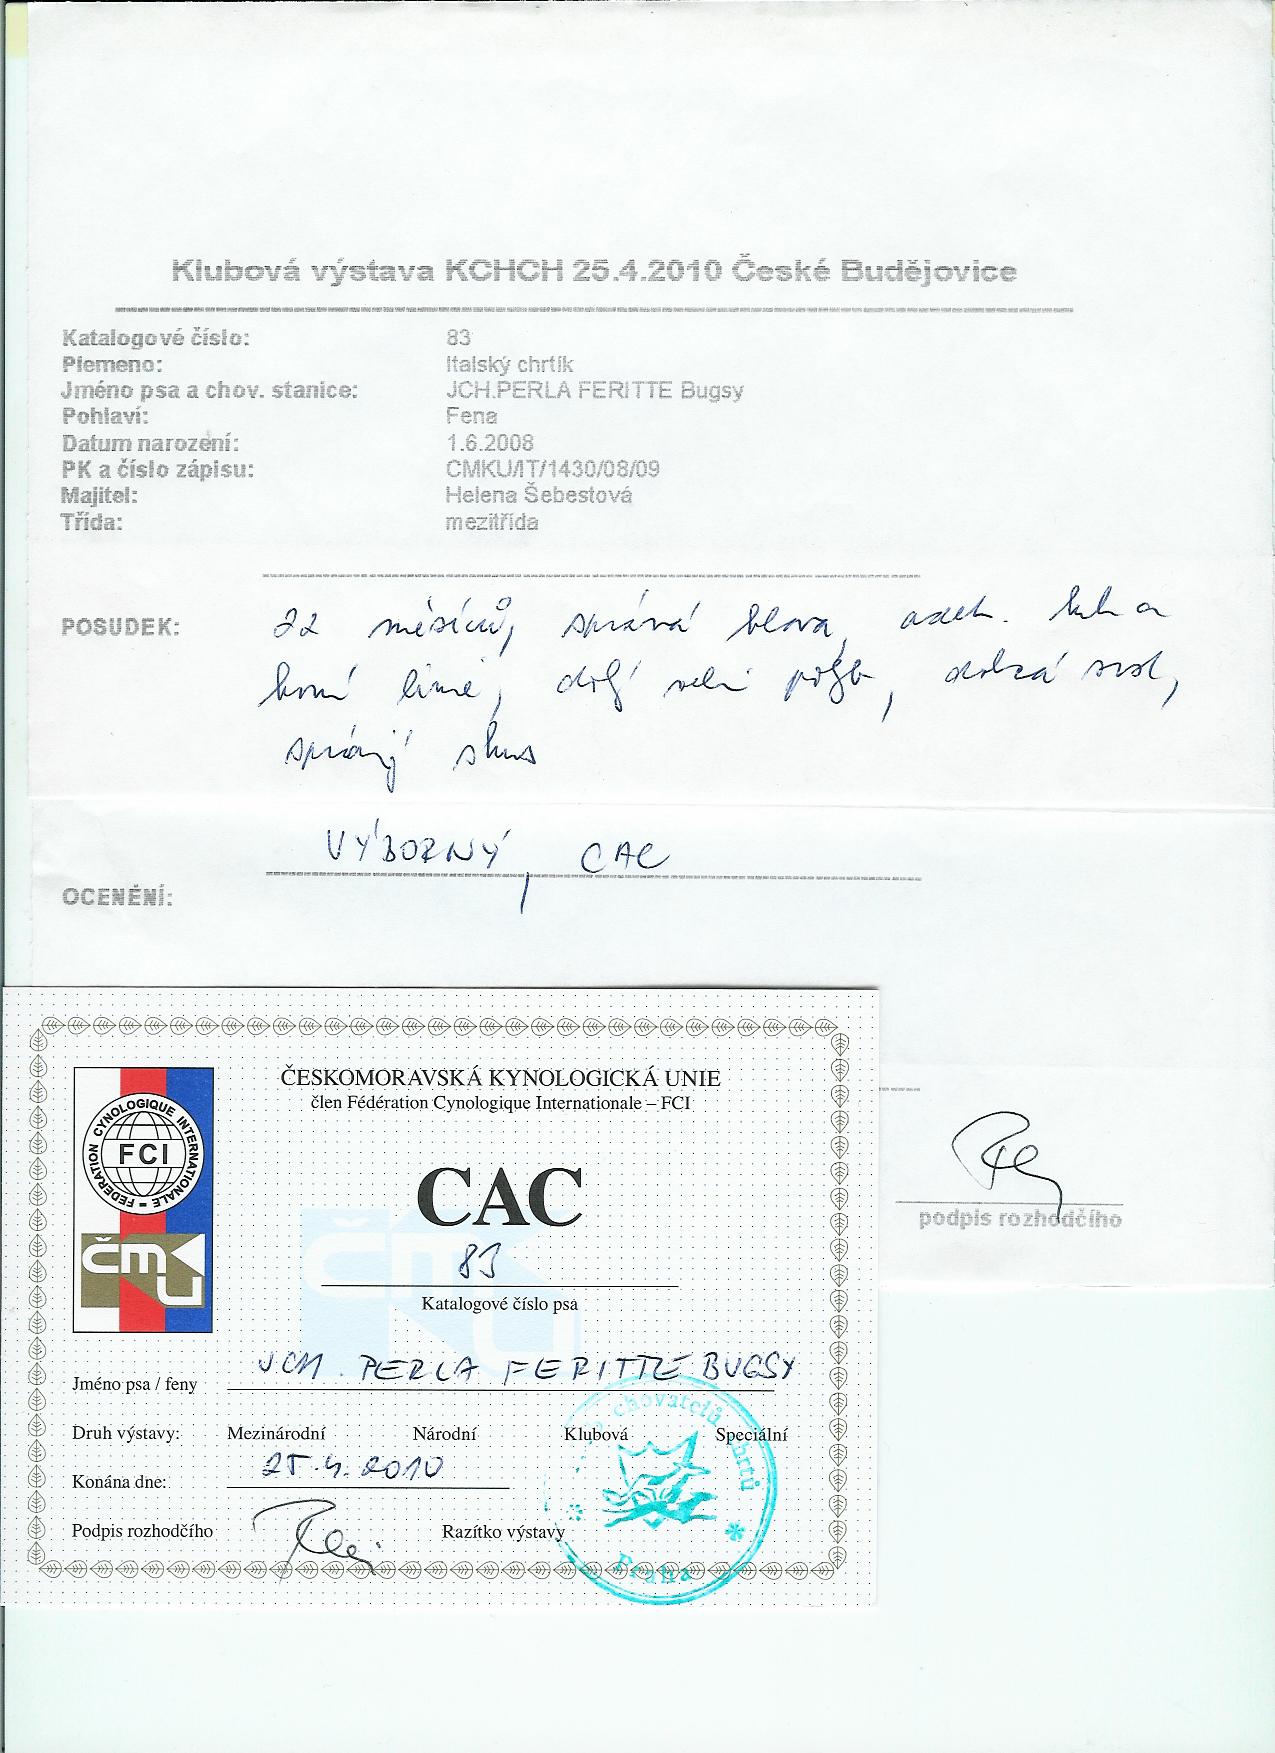 Klubová výstava KCHCH 25.4.2010 České Budějovice
Katalogové číslo: 83
Plemeno: Italský chrtík
Jméno psa a chov. stanice: JCH.PERLA FERITTE Bugsy
Pohlaví: Fena
Datum narození: 1.6.2008
PK a číslo zápisu: CMKU/IT/1430/08/09
Majitel: Helena Šebestová
Třída: mezitřída
POSUDEK: 22 měsíců, správá hlava,
horní linie,
správný skus
VÝBORNÝ, CAC
OCENĚNÍ:
podpis rozhodčího
FEDERATION CYNOLOGIQUE INTERNATIONALE
FCI
ČMKU
ČESKOMORAVSKÁ KYNOLOGICKÁ UNIE
člen Fédération Cynologique Internationale – FCI
CAC
83
Katalogové číslo psa
Jméno psa / feny JCH. PERLA FERITTE BUGSY
Druh výstavy: Mezinárodní Národní Klubová Speciální
Konána dne: 25.4.2010
Podpis rozhodčího Razítko výstavy
chovatelů chrtů
Praha